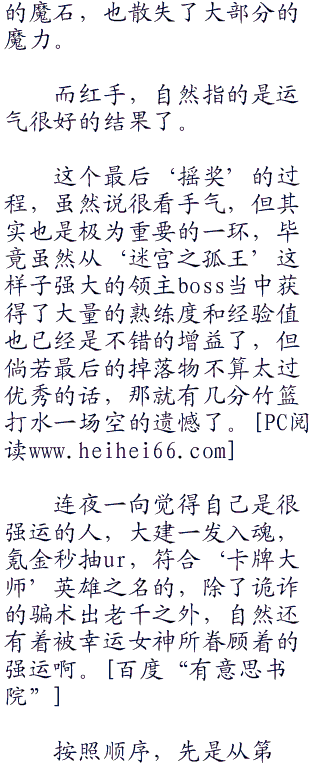 的魔石，也散失了大部分的
魔力。
而红手，自然指的是运
气很好的结果了。
这个最后‘摇奖’的过
程，虽然说很看手气，但其
实也是极为重要的一环，毕
竟虽然从‘迷宫之孤王’这
样子强大的领主boss当中获
得了大量的熟练度和经验值
也已经是不错的增益了，但
倘若最后的掉落物不算太过
优秀的话，那就有几分竹篮
打水一场空的遗憾了。[PC阅
读www.heihei66.com]
连夜一向觉得自己是很
强运的人，大建一发入魂，
氪金秒抽ur，符合‘卡牌大
师’英雄之名的，除了诡诈
的骗术出老千之外，自然还
有着被幸运女神所眷顾着的
强运啊。[百度“有意思书
院”]
按照顺序，先是从第